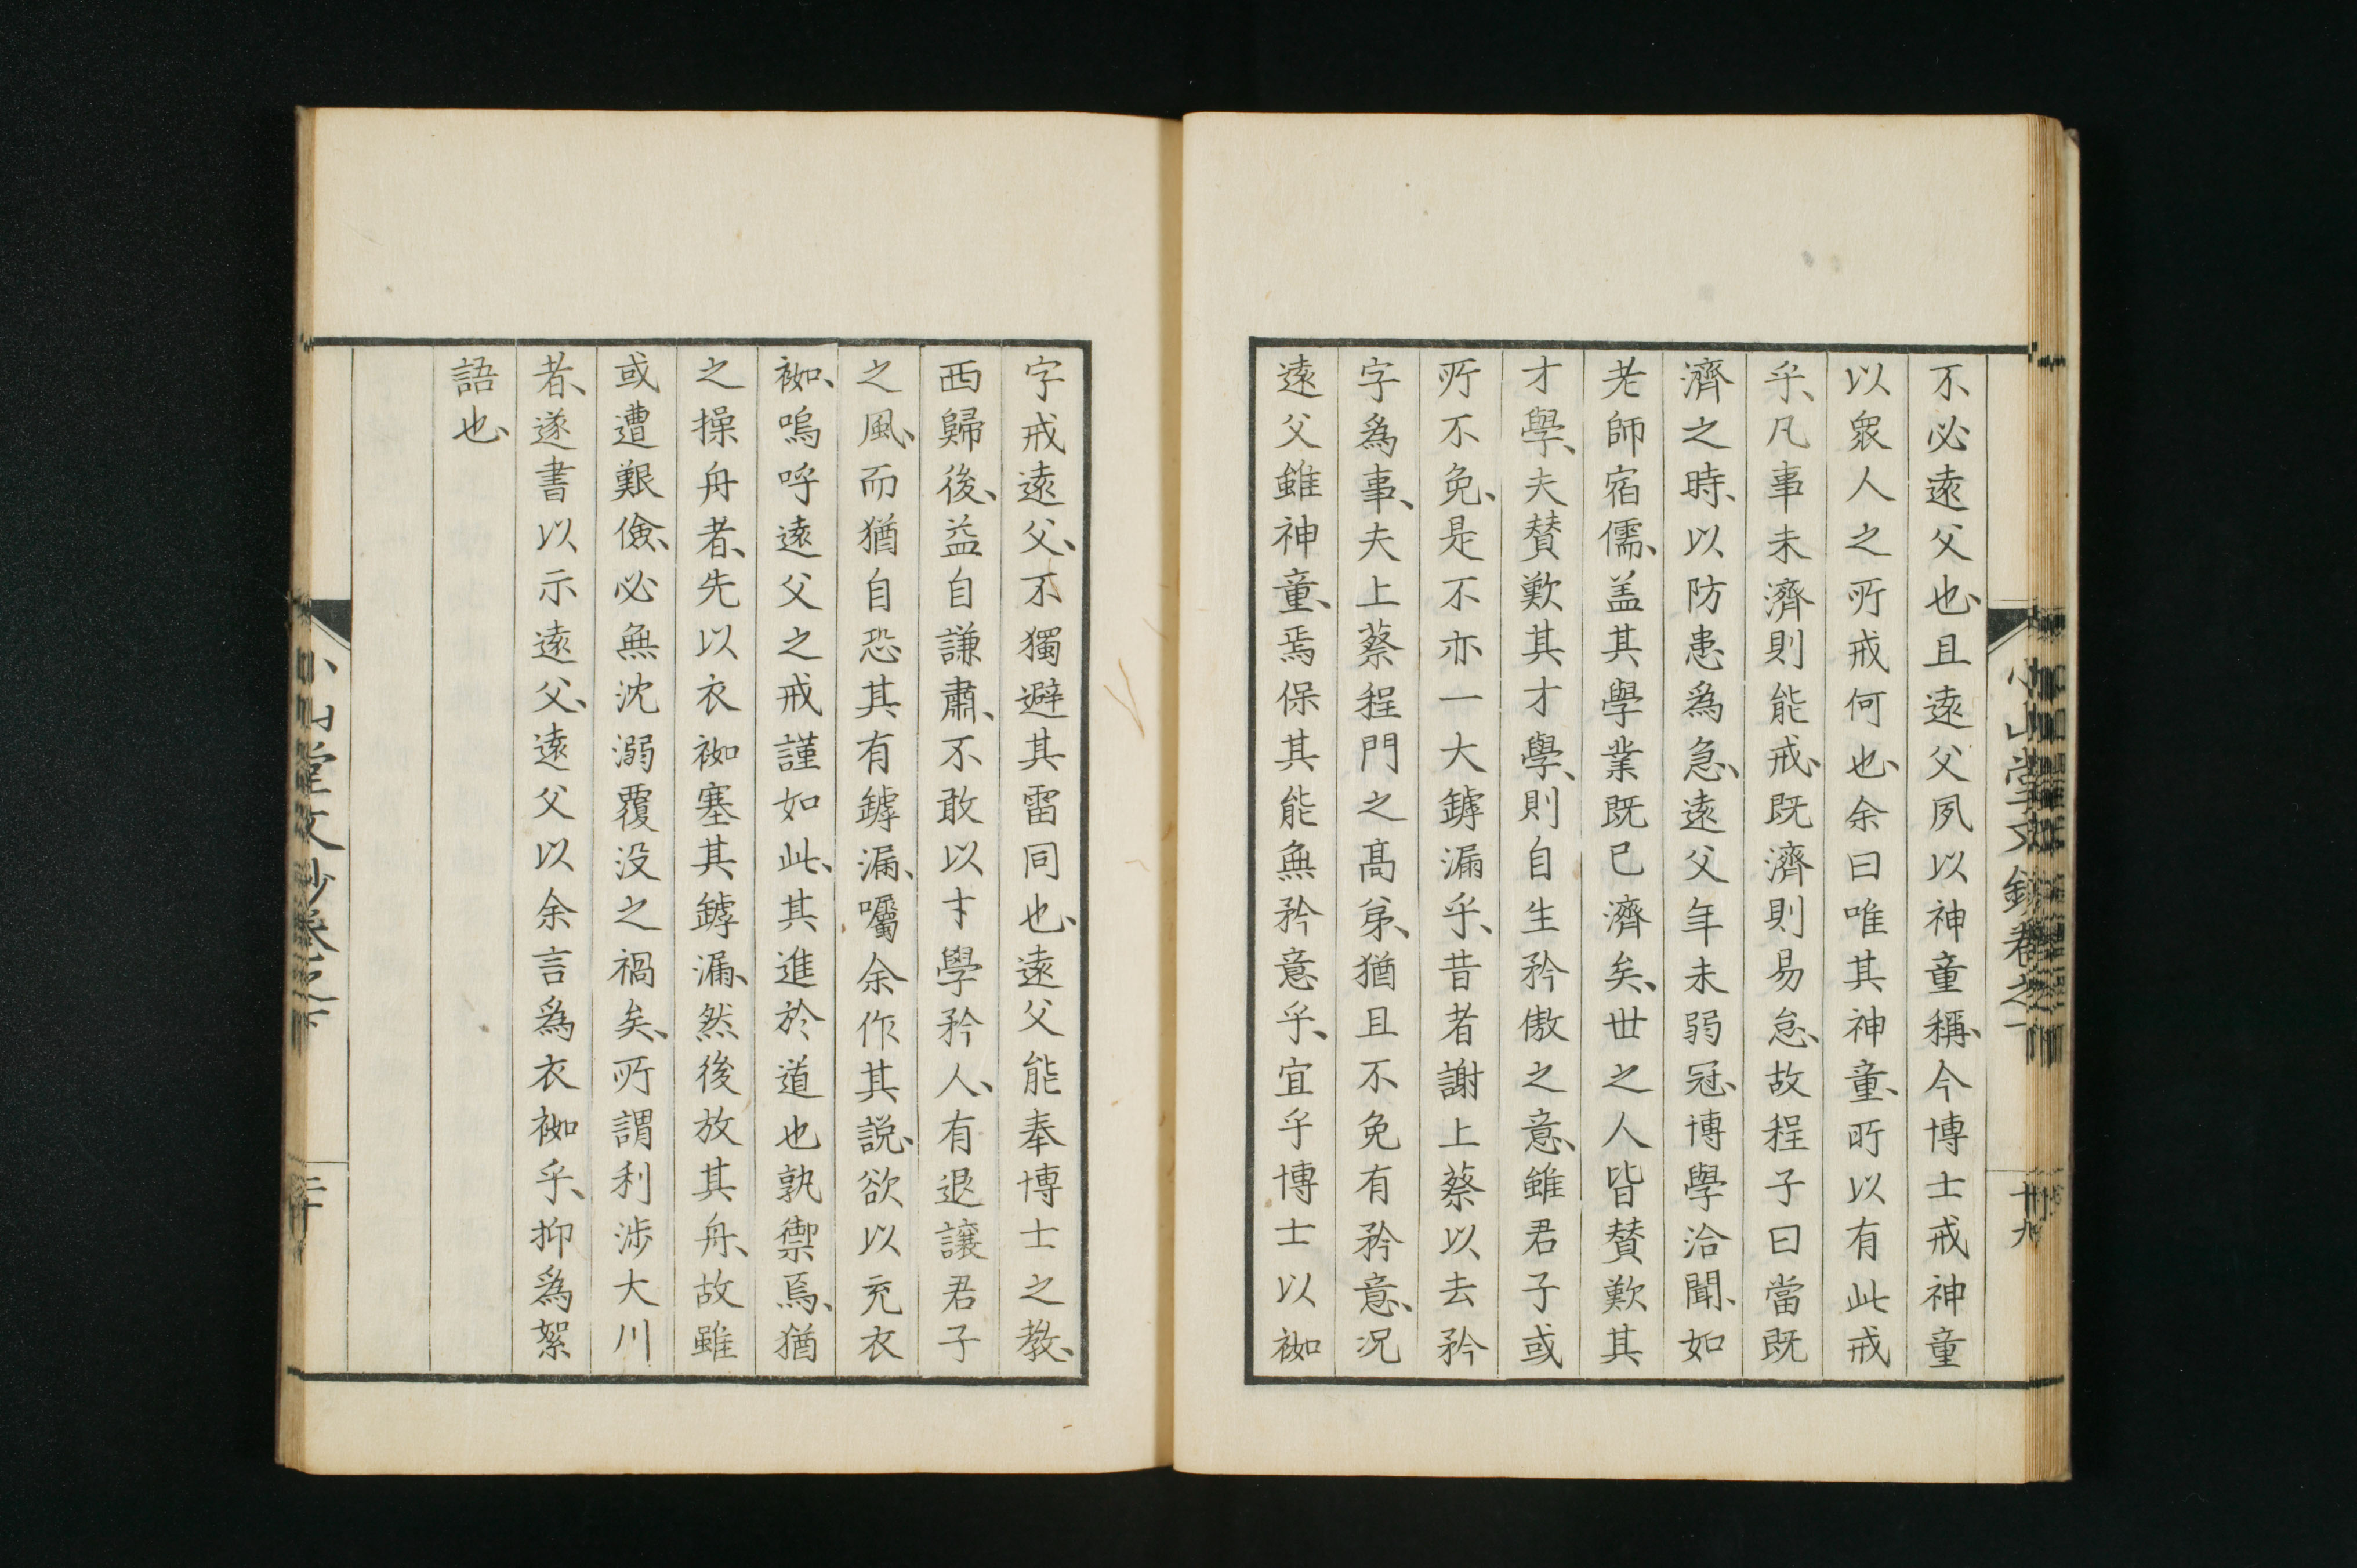 不必遠父也、且遠父夙以神童稱、今博士戒神童
以衆人之所戒何也、余曰唯其神童、所以有此戒
乎、凡事未濟則能戒、既濟則易怠、故程子曰當既
濟之時、以防患爲急、遠父年未弱冠、博學洽聞、如
老師宿儒、盖其學業既已濟矣、世之人皆賛歎其
才學、夫賛歎其才學、則自生矜傲之意、雖君子或
所不免、是不亦一大罅漏乎、昔者謝上蔡以去矜
字爲事、夫上蔡程門之高弟、猶且不免有矜意、況
遠父雖神童、焉保其能無矜意乎、宜乎博士以袽
小山堂文鈔卷之一
十九
字戒遠父、不獨避其雷同也、遠父能奉博士之教、
西歸後、益自謙肅、不敢以才學矜人、有退讓君子
之風、而猶自恐其有罅漏、囑余作其説、欲以充衣
袽、嗚呼遠父之戒謹如此、其進於道也孰禦焉、猶
之操舟者、先以衣袽塞其罅漏、然後放其舟、故雖
或遭艱儉、必無沈溺覆没之禍矣、所謂利渉大川
者、遂書以示遠父、遠父以余言爲衣袽乎、抑爲絮
語也、
小山堂文鈔卷之一
二十